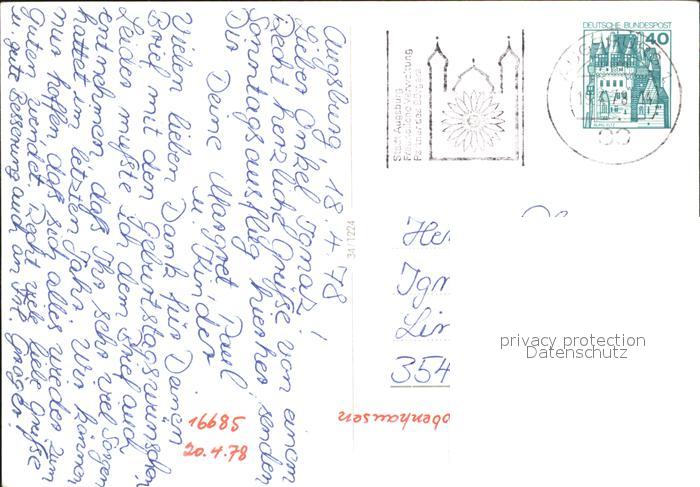 Augsburg, 18.4.78
Lieber Onkel Ignaz!
Recht herzliche Grüße von einem
Sonntagsausflug hierher, senden
Dir Deine Margret, Paul
u. Kinder
Vielen lieben Dank für Deinen
Brief mit den Geburtstagswünschen
Leider mußte ich dem Brief auch
entnehmen daß Ihr sehr viel Sorgen
hattet im letzten Jahr. Wir können
nur hoffen, daß sich alles wieder zum
Guten wendet. Recht viele liebe Grüße
u. gute Besserung auch an Frl.
16685
20.4.78
34/1224
Stadt Augsburg
DEUTSCHE BUNDESPOST
40
Ign
354
obenhausen
privacy protection
Datenschutz